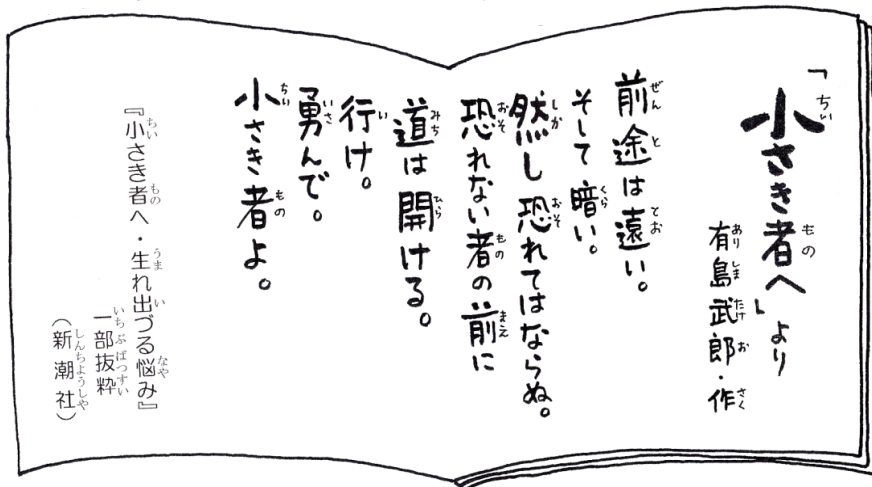 「小さき者へ」より
有島武郎・作
前途は遠い。
そして暗い。
然し恐れてはならぬ。
恐れない者の前に
道は開ける。
行け。
勇んで。
小さき者よ。
『小さき者へ・生れ出づる悩み』
一部抜粋
(新潮社)